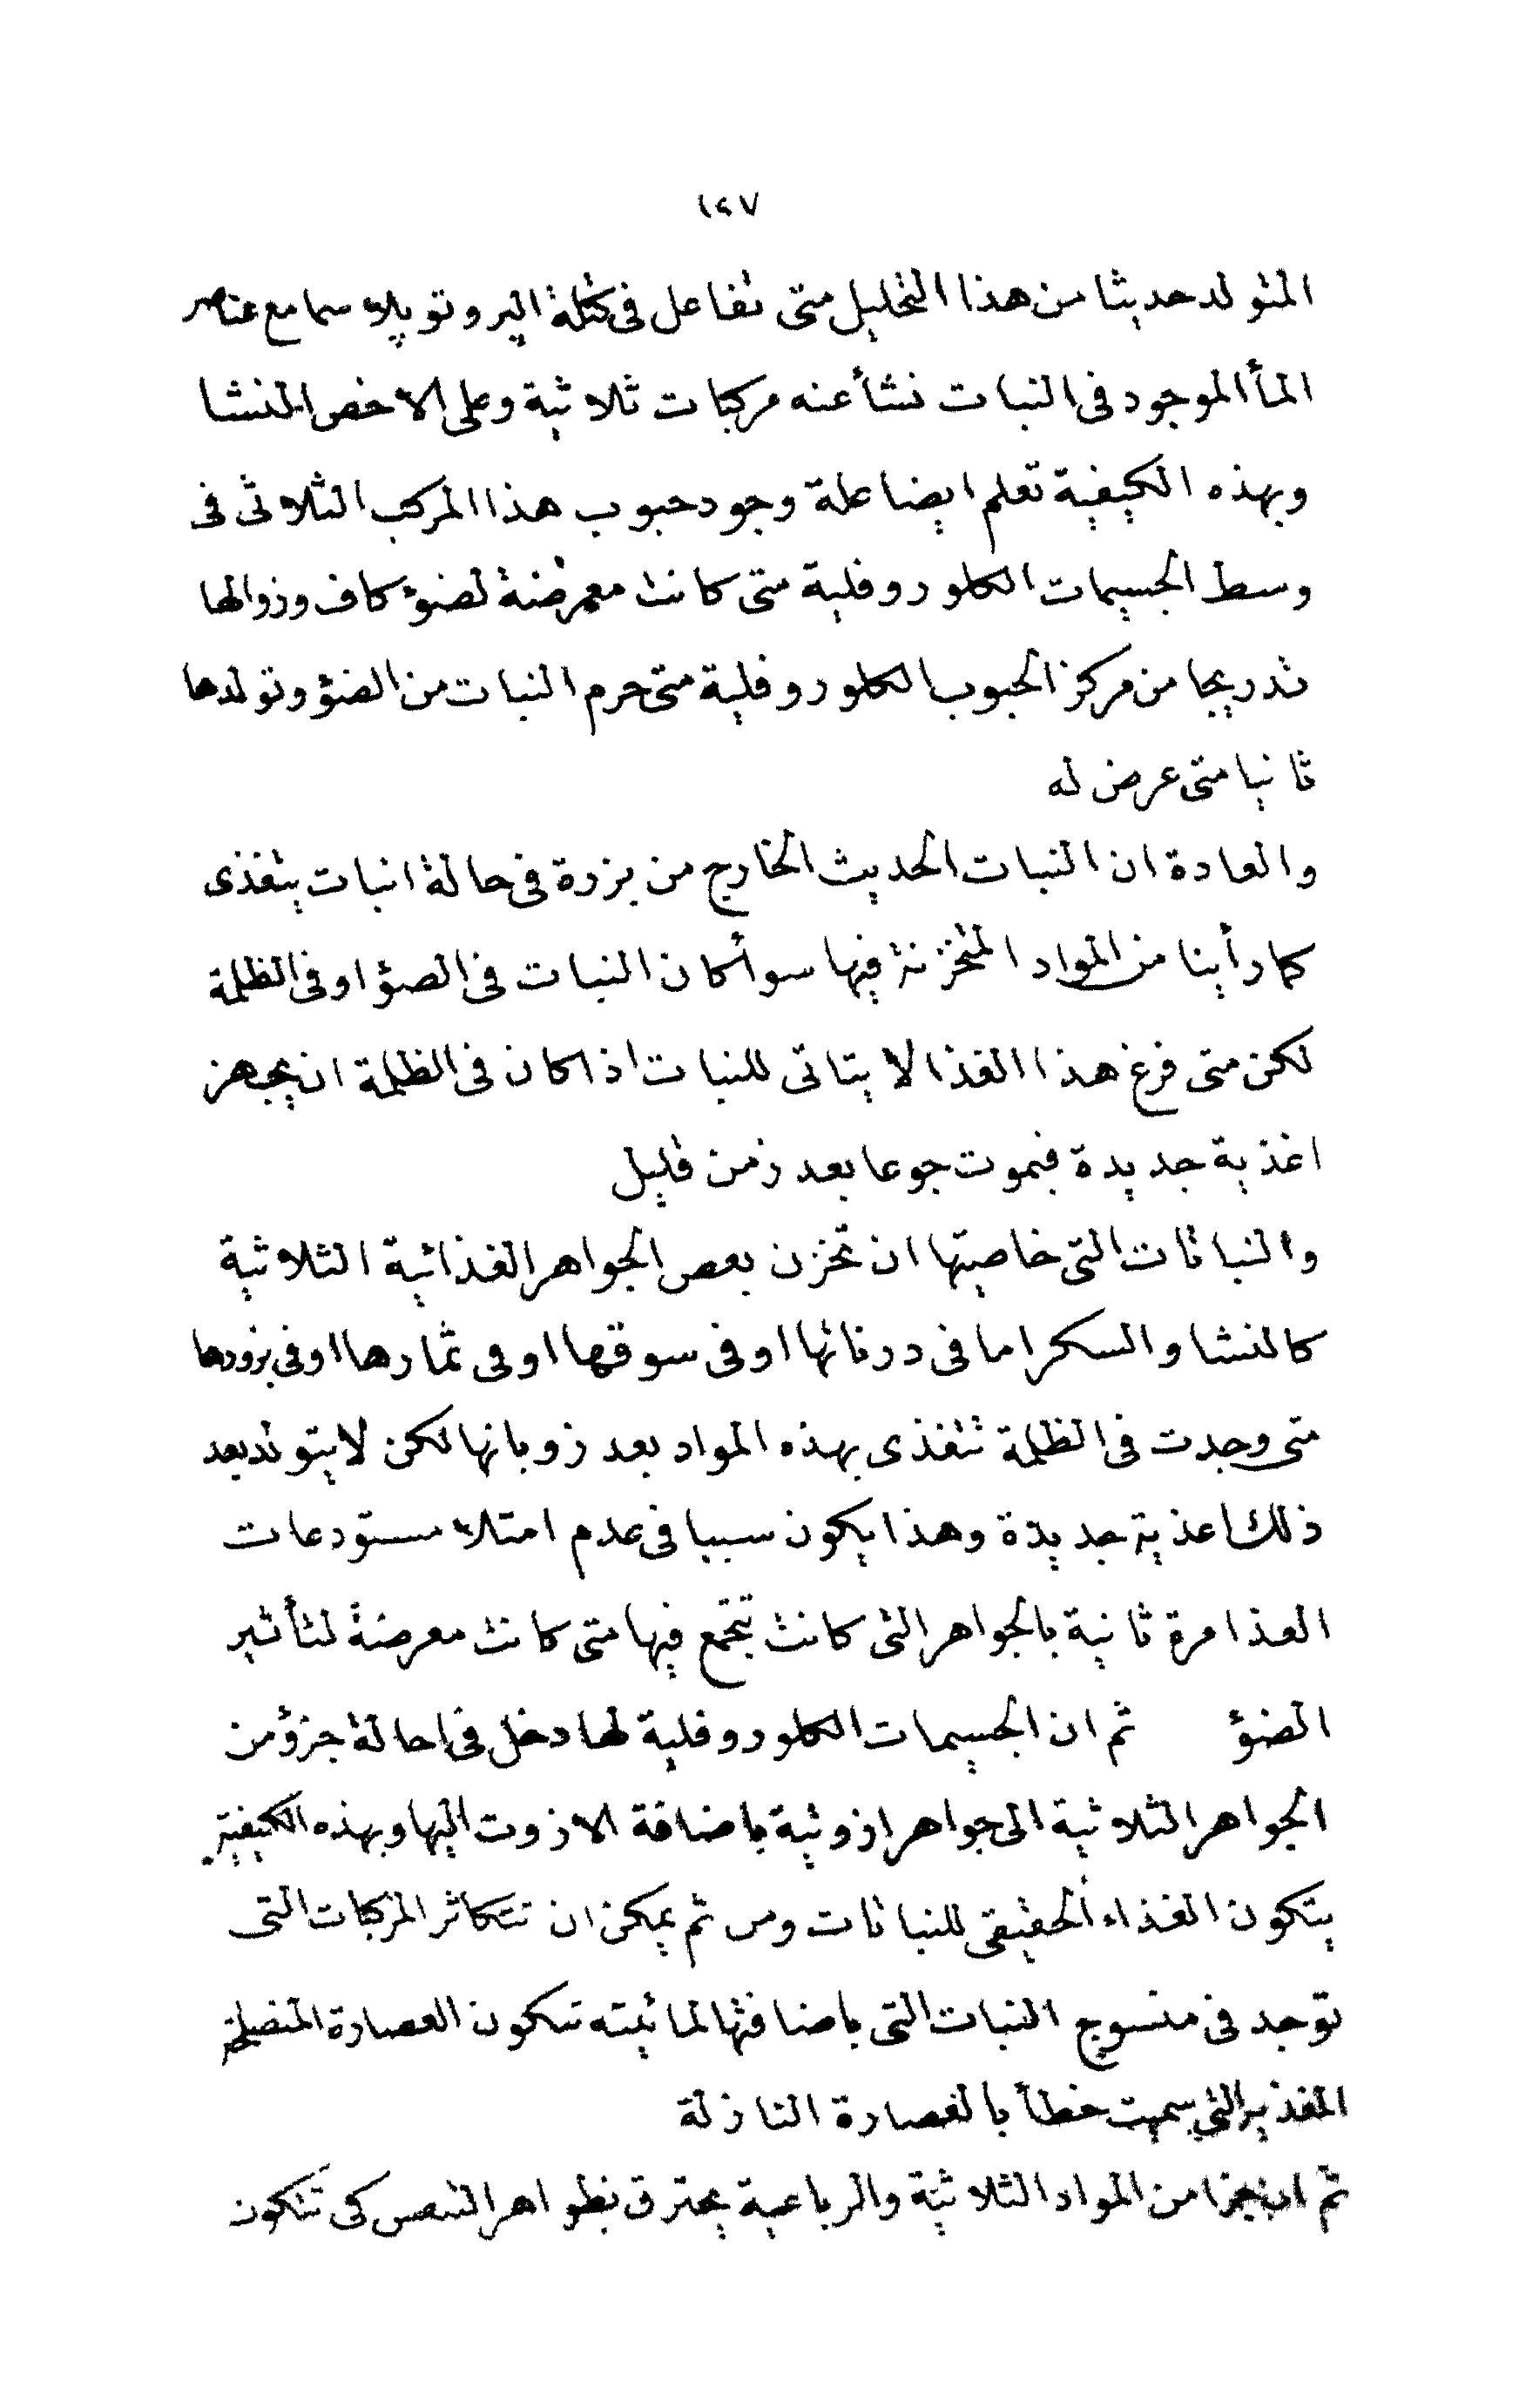 ١٢٧
المتولد حديثا من هذا التحليل متى تفاعل فى كتلة البروتوپلاسما مع عناصر
المأ الموجود فى النبات نشأ عنه مركبات ثلاثية وعلى الاخص المنشا
وبهذه الكيفية تعلم ايضا علة وجود حبوب هذا المركب الثلاثى فى
وسط الجسيمات الكلوروفلية متى كانت معرضة لضوء كاف وزوالها
تدريجا من مركز الحبوب الكلوروفلية متى حرم النبات من الضؤ وتولدها
ثانيا متى عرض له
والعادة ان النبات الحديث الخارج من بزرة فى حالة انبات يتغذى
كما رأينا من المواد المتخزنة فيها سوأ كان النبات فى الصؤ او فى الظلمة
لكن متى فرغ هذا الغذا لا يتاتى للنبات اذا كان فى الظلمة ان يجهز
اغذية جديدة فيموت جوعا بعد زمن قليل
والنباتات التى خاصيتها ان تخزن بعص الجواهر الغذائية الثلاثية
كالنشا والسكر اما فى درناتها او فى سوقها او فى ثمارها او فى بزورها
متى وجدت فى الظلمة تتغذى بهذه المواد بعد زوبانها لكن لا يتولد بعد
ذلك اعذية جديدة وهذا يكون سببا فى عدم امتلاء مستودعات
العذا مرة ثانية بالجواهر التى كانت تتجمع فيها متى كانت معرضة لتأثير
الضؤ ثم ان الجسيمات الكلوروفلية لها دخل فى احالة جزؤ من
الجواهر الثلاثية الى جواهر ازوتية باضافة الازوت اليها وبهذه الكيفية
يتكون الغذاء الحقيقى للنباتات ومن ثم يمكن ان تتكاثر المركبات التى
توجد فى منسوج النبات التى باضافتها لمائيته تتكون العصارة المتصلحة
المغذية التى سميت خطأ بالعصارة النازلة
ثم ان جزا من المواد الثلاثية والرباعية يحترق بظواهر التنفس كى تتكون